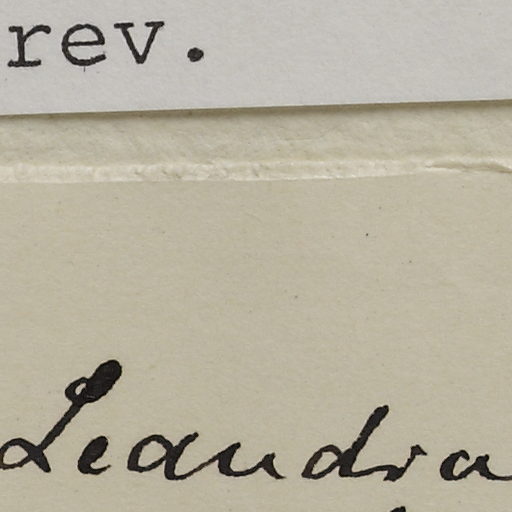 rev.
Leandra